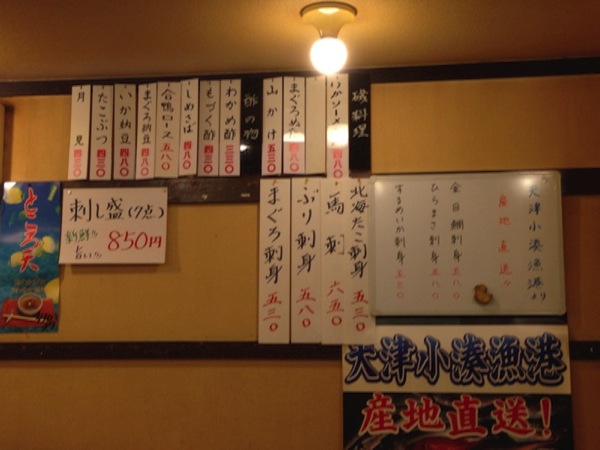 磯料理
いかソーメン 四八〇
まぐろぬた 四八〇
山かけ 五三〇
酢の物
わかめ酢 三三〇
もづく酢 四三〇
しめさば 四八〇
合鴨ロース 五八〇
まぐろ納豆 四八〇
いか納豆 四八〇
たこぶつ 四三〇
月見 四三〇
天津小湊漁港より
産地直送
金目鯛刺身 五八〇
ひらまさ刺身 五八〇
するめいか刺身 五三〇
北海たこ刺身 五三〇
馬刺 六五〇
ぶり刺身 五八〇
まぐろ刺身 五三〇
刺し盛(7点)
新鮮
旨い
850円
ところ天
天津小湊漁港
産地直送!